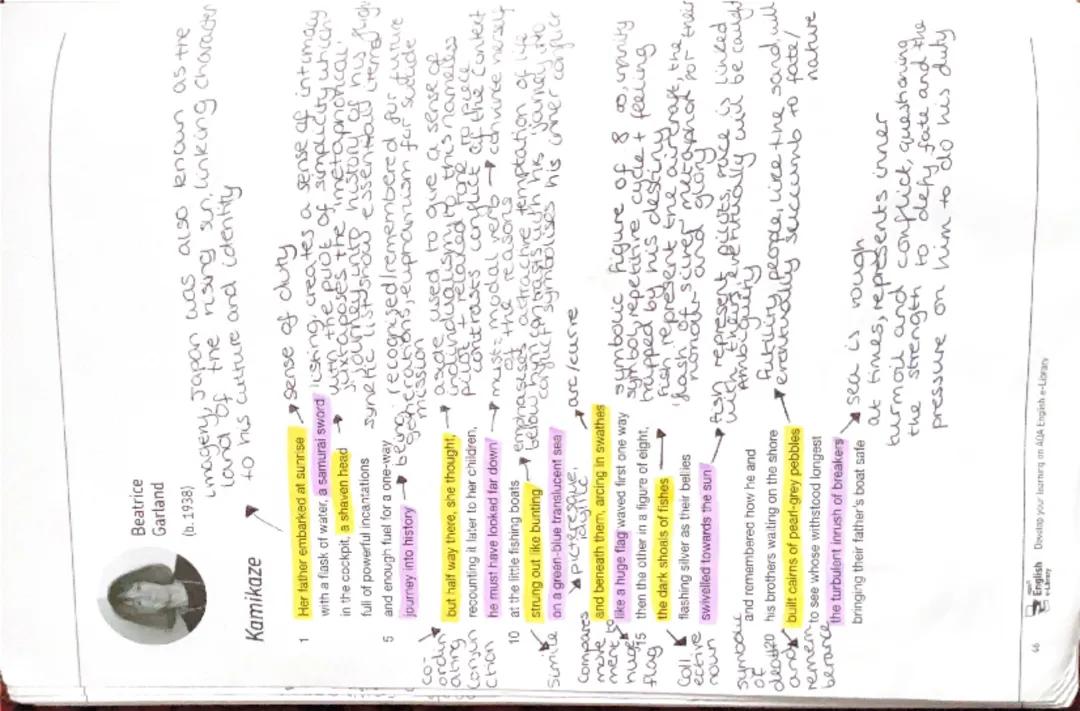 Beatrice
Garland
(b. 1938)
imagery, Japan was also known as the
land of the rising sun, linking character
to his culture and identity
Kamikaze
1 Her father embarked at sunrise
with a flask of water, a samurai sword
in the cockpit, a shaven head
full of powerful incantations
5 and enough fuel for a one-way
journey into history
but half way there, she thought,
recounting it later to her children,
he must have looked far down
10 at the little fishing boats
strung out like bunting
on a green-blue translucent sea
and beneath them, arcing in swathes
like a huge flag waved first one way
15 then the other in a figure of eight,
the dark shoals of fishes
flashing silver as their bellies
swivelled towards the sun
and remembered how he and
20 his brothers waiting on the shore
built cairns of pearl-grey pebbles
to see whose withstood longest
the turbulent inrush of breakers
bringing their father's boat safe
sense of duty
listing, creates a sense of intimacy
with the pilot of simplicity which
juxtaposes the metaphorical,
'journey into history' of his flight
list, shows essential items
being recognised/remembered for future
generations, euphemism for suicide
mission
co-
ordin
ating
conjun
ction
aside used to give a sense of
individualism to this nameless
pilot + relaxed tone to piece
contrasts conflict of the context
must = modal verb → convince herself
of the reasons
emphasises attractive temptation of life
below, contrasts with his journey to
conflict symbolises his inner conflict
simile
picturesque,
idyllic
arc/curve
compares
move
ment to
huge
flag
symbolic figure of 8 ∞, infinity
symbol, repetitive cycle + feeling
trapped by his destiny
fish represent the aircraft, the
'flash of silver' metaphor for their
honour and glory
coll
ective
noun
fish represent pilots, race is linked
with theirs, eventually will be caught
Ambiguity
symbol
of
death
and
remem
berance
futility people, like the sand, will
eventually succumb to fate/
nature
sea is rough
at times, represents inner
turmoil and conflict, questioning
the strength to defy fate and the
pressure on him to do his duty
66
English
e-Library
Develop your learning on AQA English e-Library